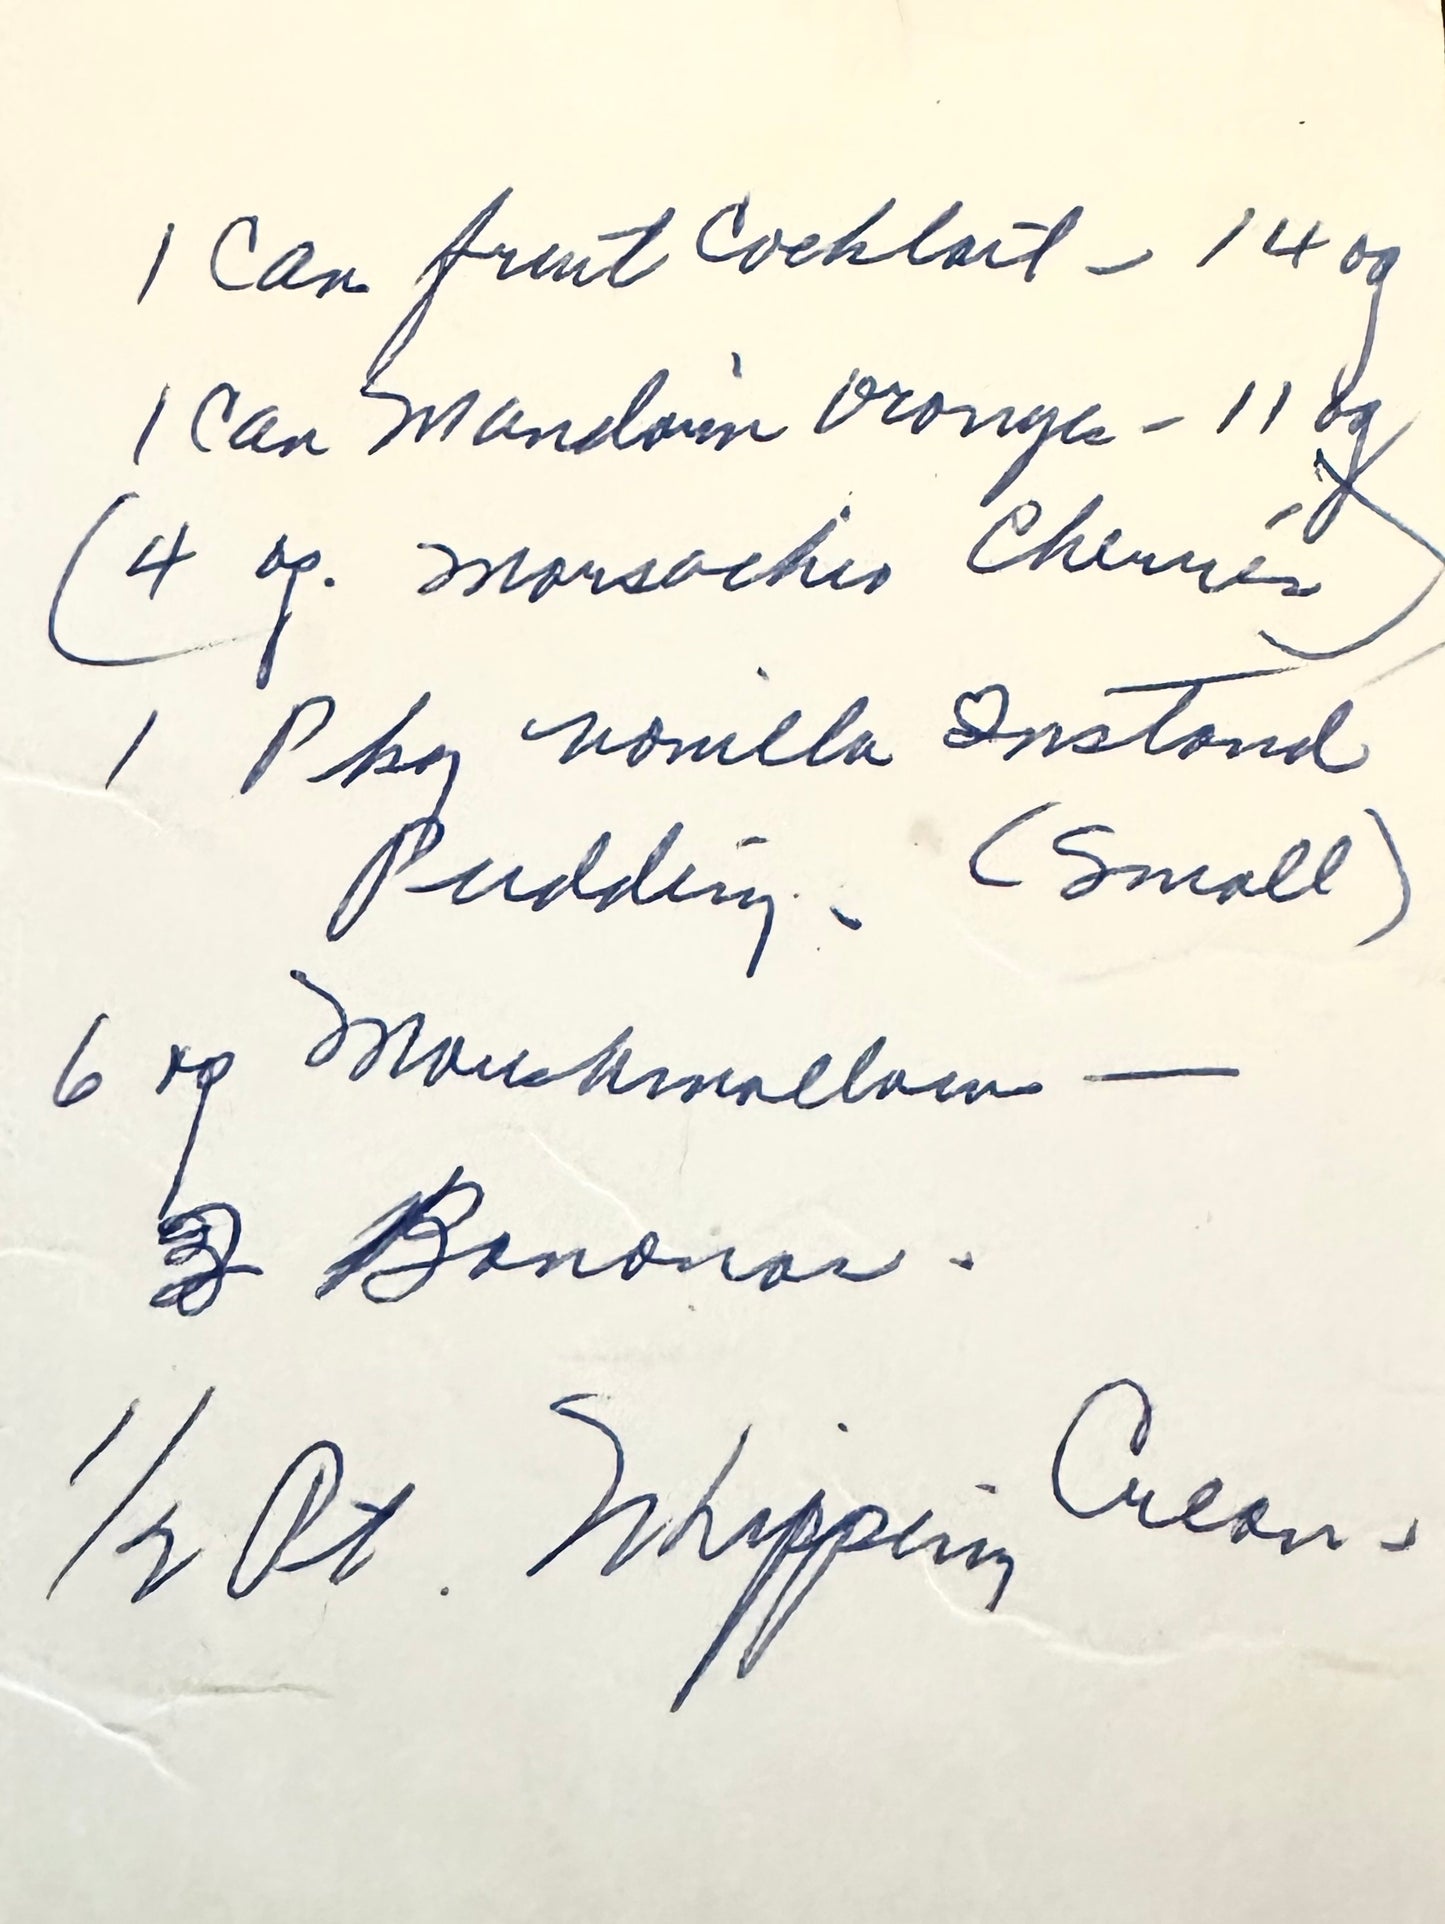 1 Can fruit Cocktail - 14 oz
1 Can Mandarin Oranges - 11 oz
(4 oz. Marsachio Cherries)
1 Pkg vanilla Instand
Pudding. (Small)
6 oz Marshmallows —
Bananas.
1/2 Pt. Whipping Cream.